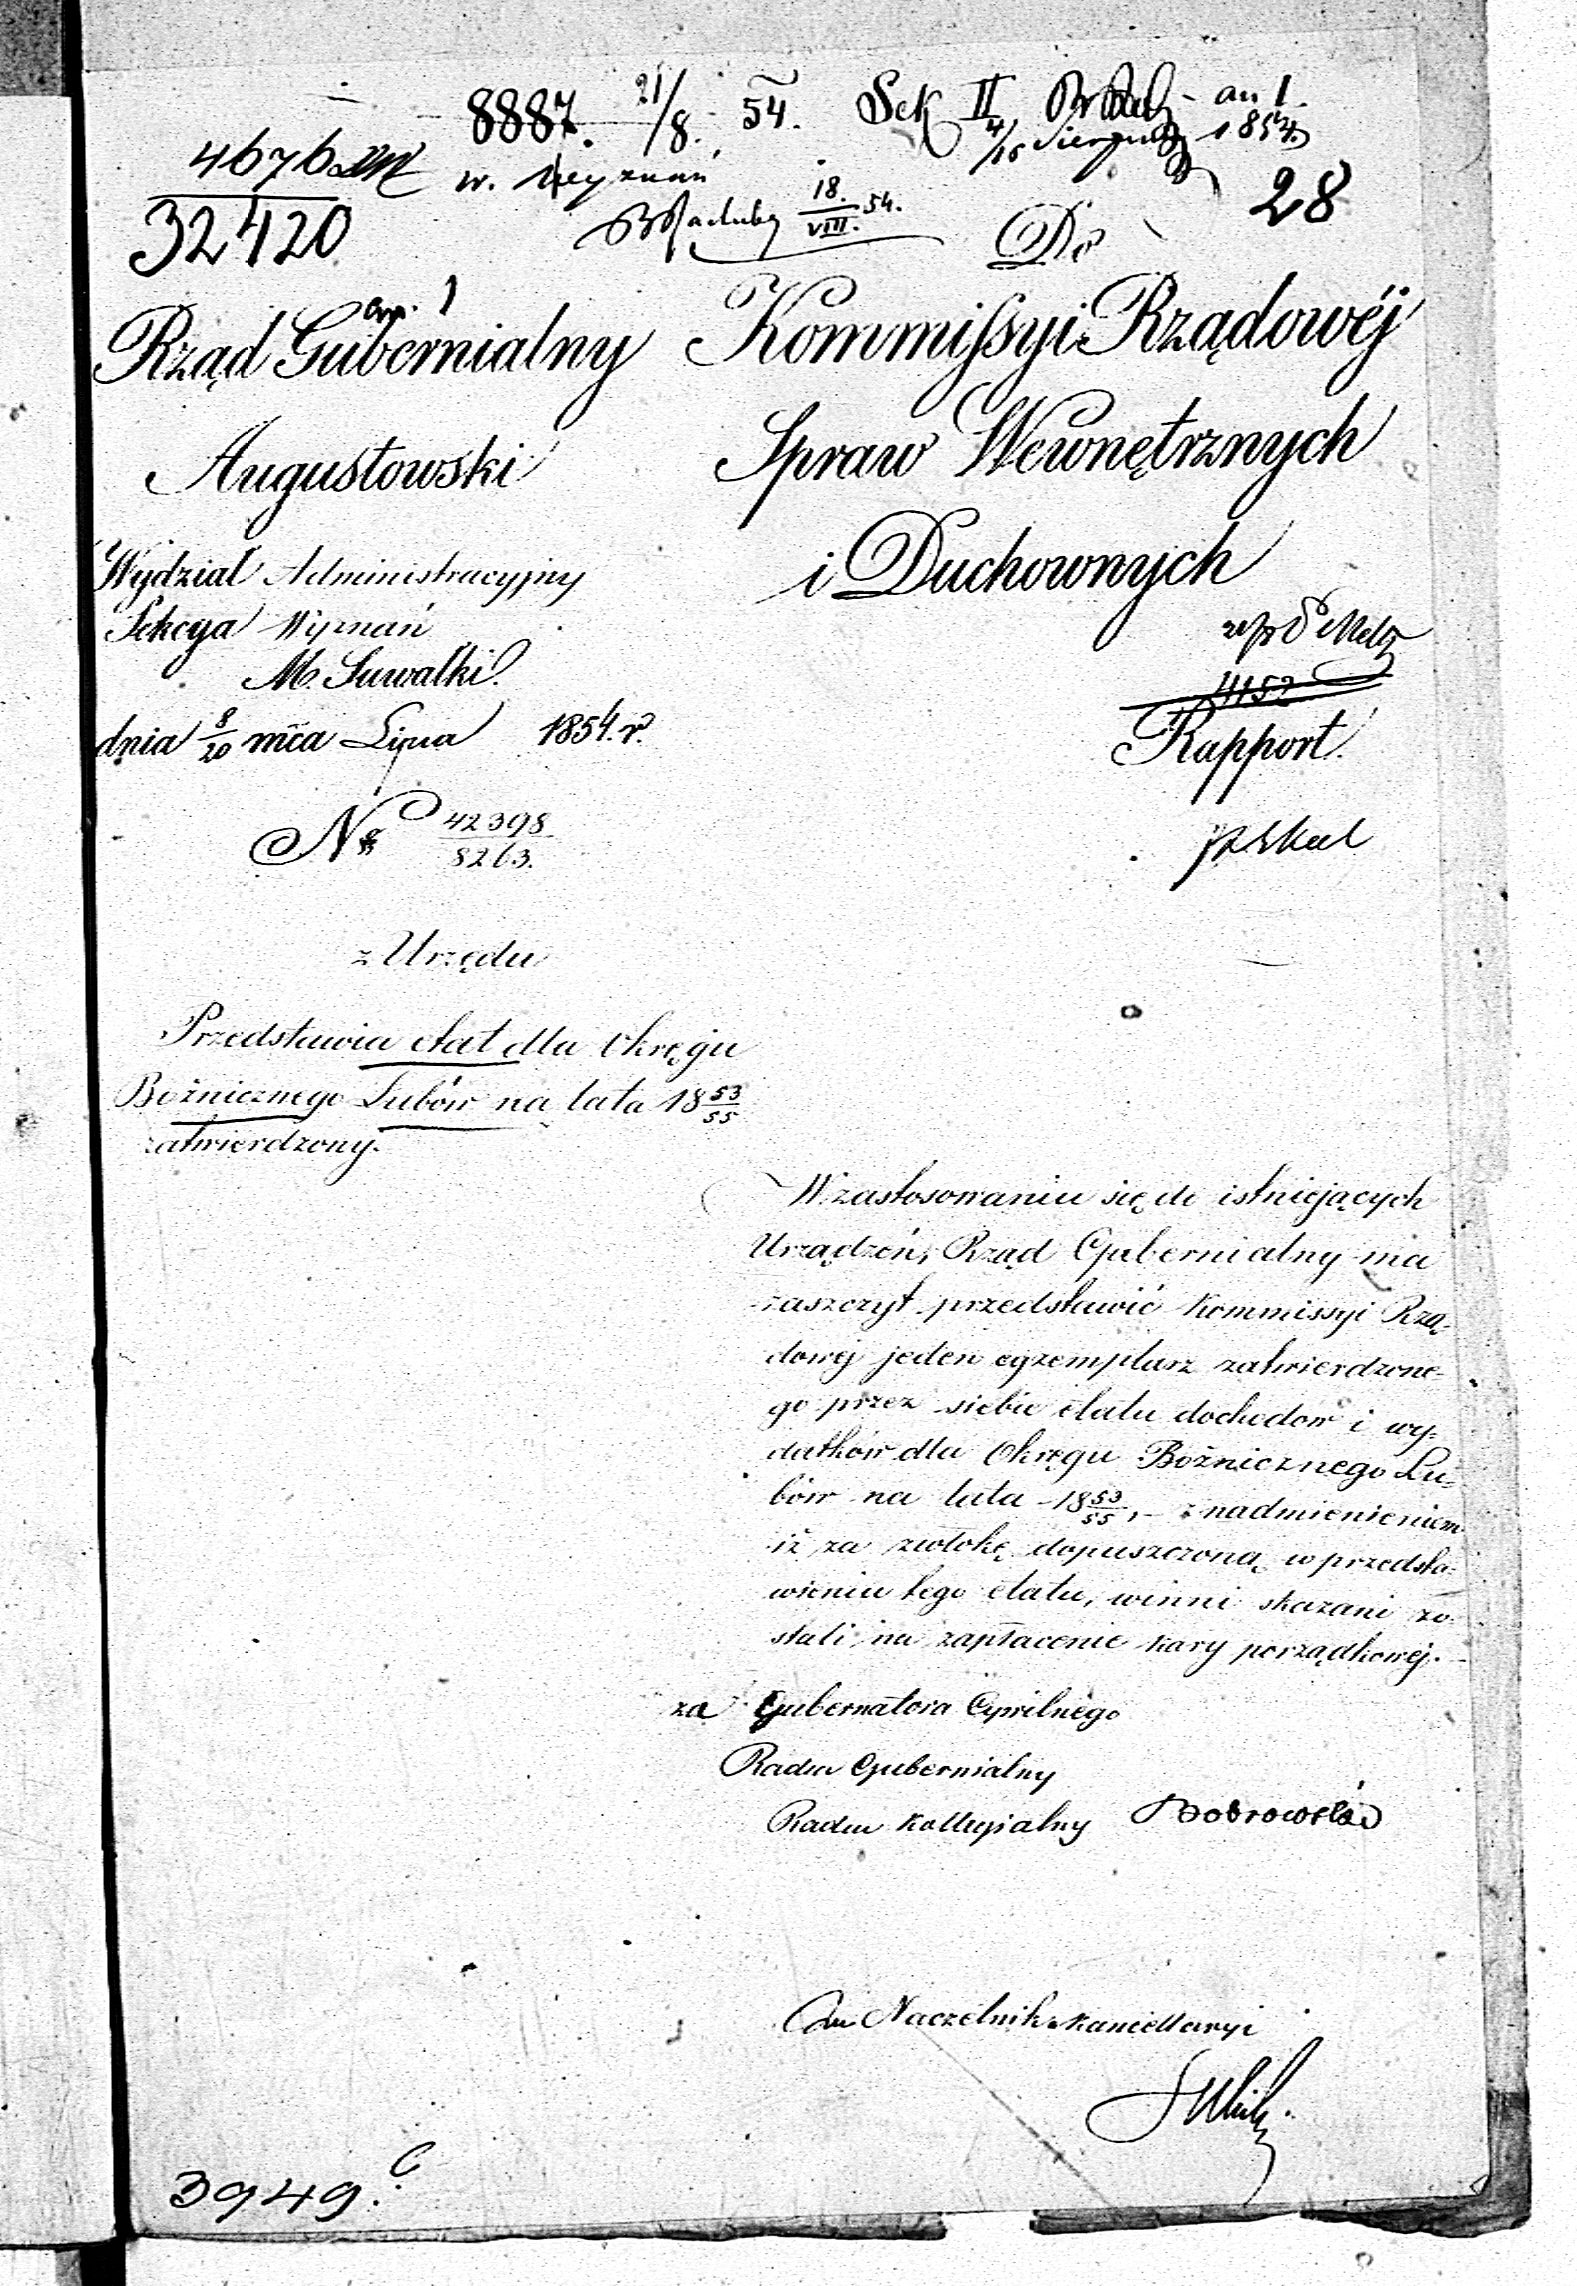 8887. 21/8. 54. Sek II
4/16 Sierpnia 1854
4676
32420
18./VIII. 54.
28
Do
Rząd Gubernialny
Augustowski
Wydział Administracyjny
Sekcya Wyznań
M. Suwałki.
dnia 8/20 mca Lipca 1854. r.
No 42398/8263.
Kommissyi Rządowéj
Spraw Wewnętrznych
i Duchownych
4152
Rapport.
z Urzędu
Przedstawia etat dla Okręgu
Bóżnicznego Lubów na lata 18 53/55
zatwierdzony.
W zastosowaniu się do istniejących
Urządzeń, Rząd Gubernialny ma
zaszczyt przedstawić Kommissyi Rzą-
dowej jeden egzemplarz zatwierdzone-
go przez siebie etatu dochodów i wy-
datków dla Okręgu Bóżnicznego Lu-
bów na lata 18 53/55, z nadmienieniem
iż za zwłokę dopuszczoną w przedsta-
wieniu tego etatu, winni skazani zo-
stali na zapłacenie kary porządkowej.
za Gubernatora Cywilnego
Radca Gubernialny
Radca Kollegialny Bobrowski
Naczelnik Kancellaryi
3949.